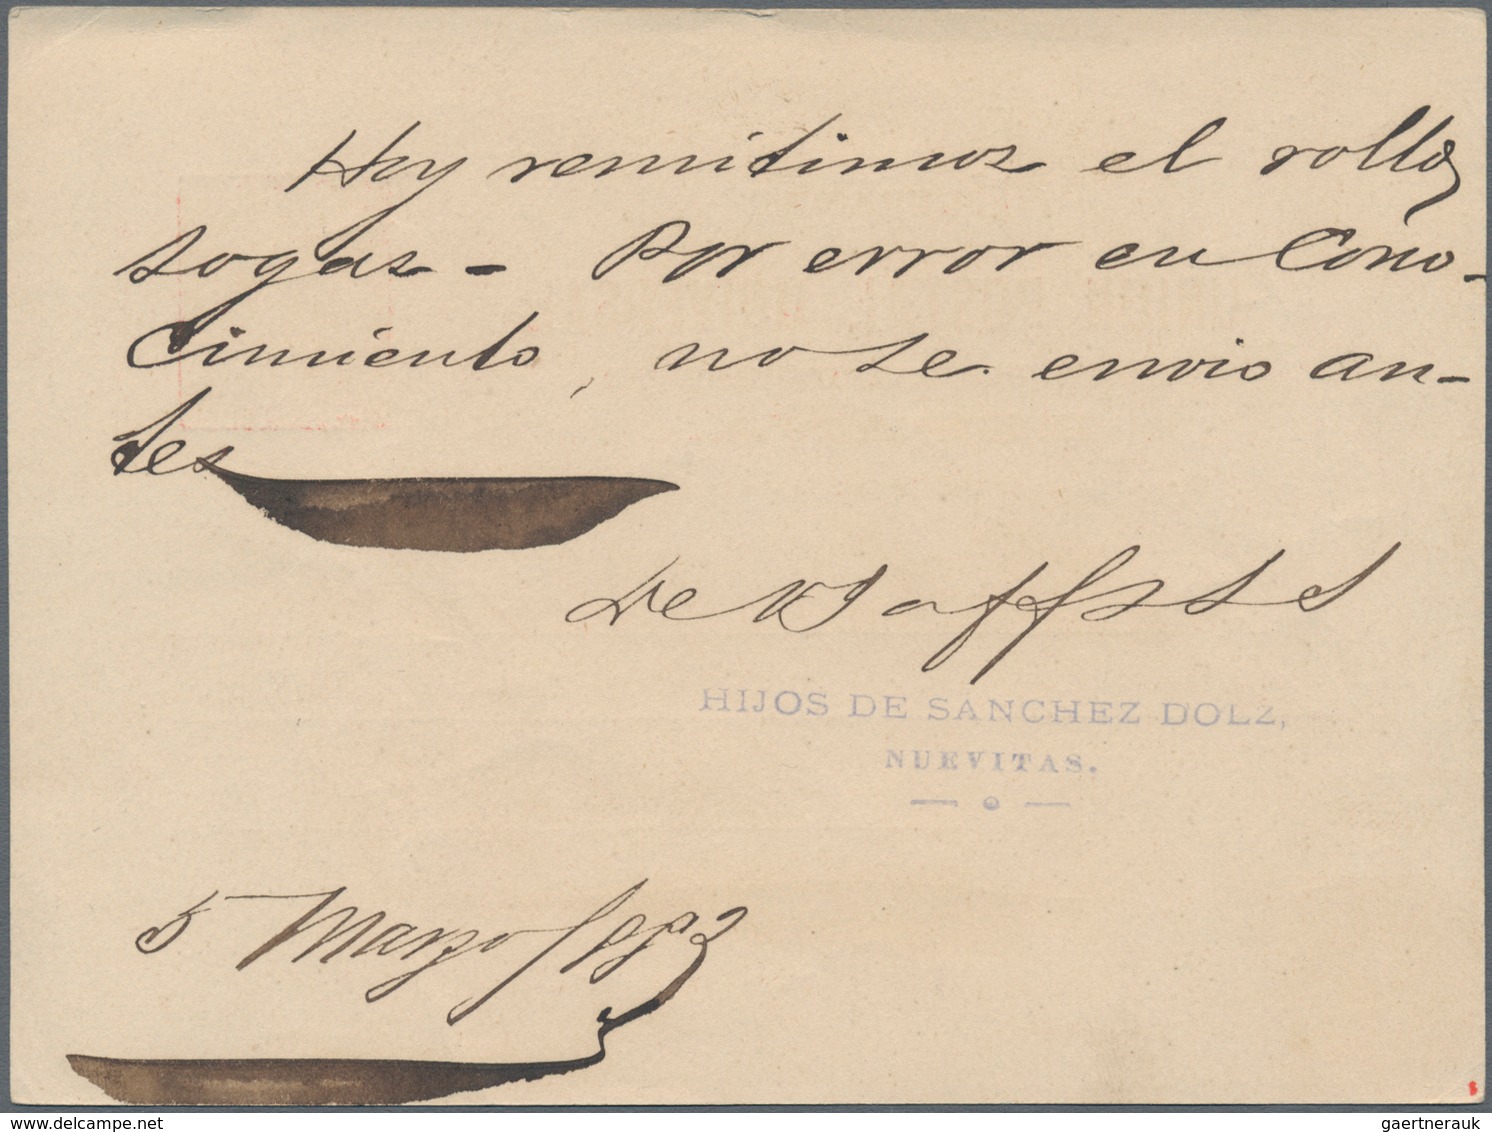 Hoy remitimos el rollo
sogas - Por error en Cono-
cimiento, no se envio an-
tes
De Vd aff
HIJOS DE SANCHEZ DOLZ,
NUEVITAS.
5 Marzo/
delcampe.net
gaertnerauk